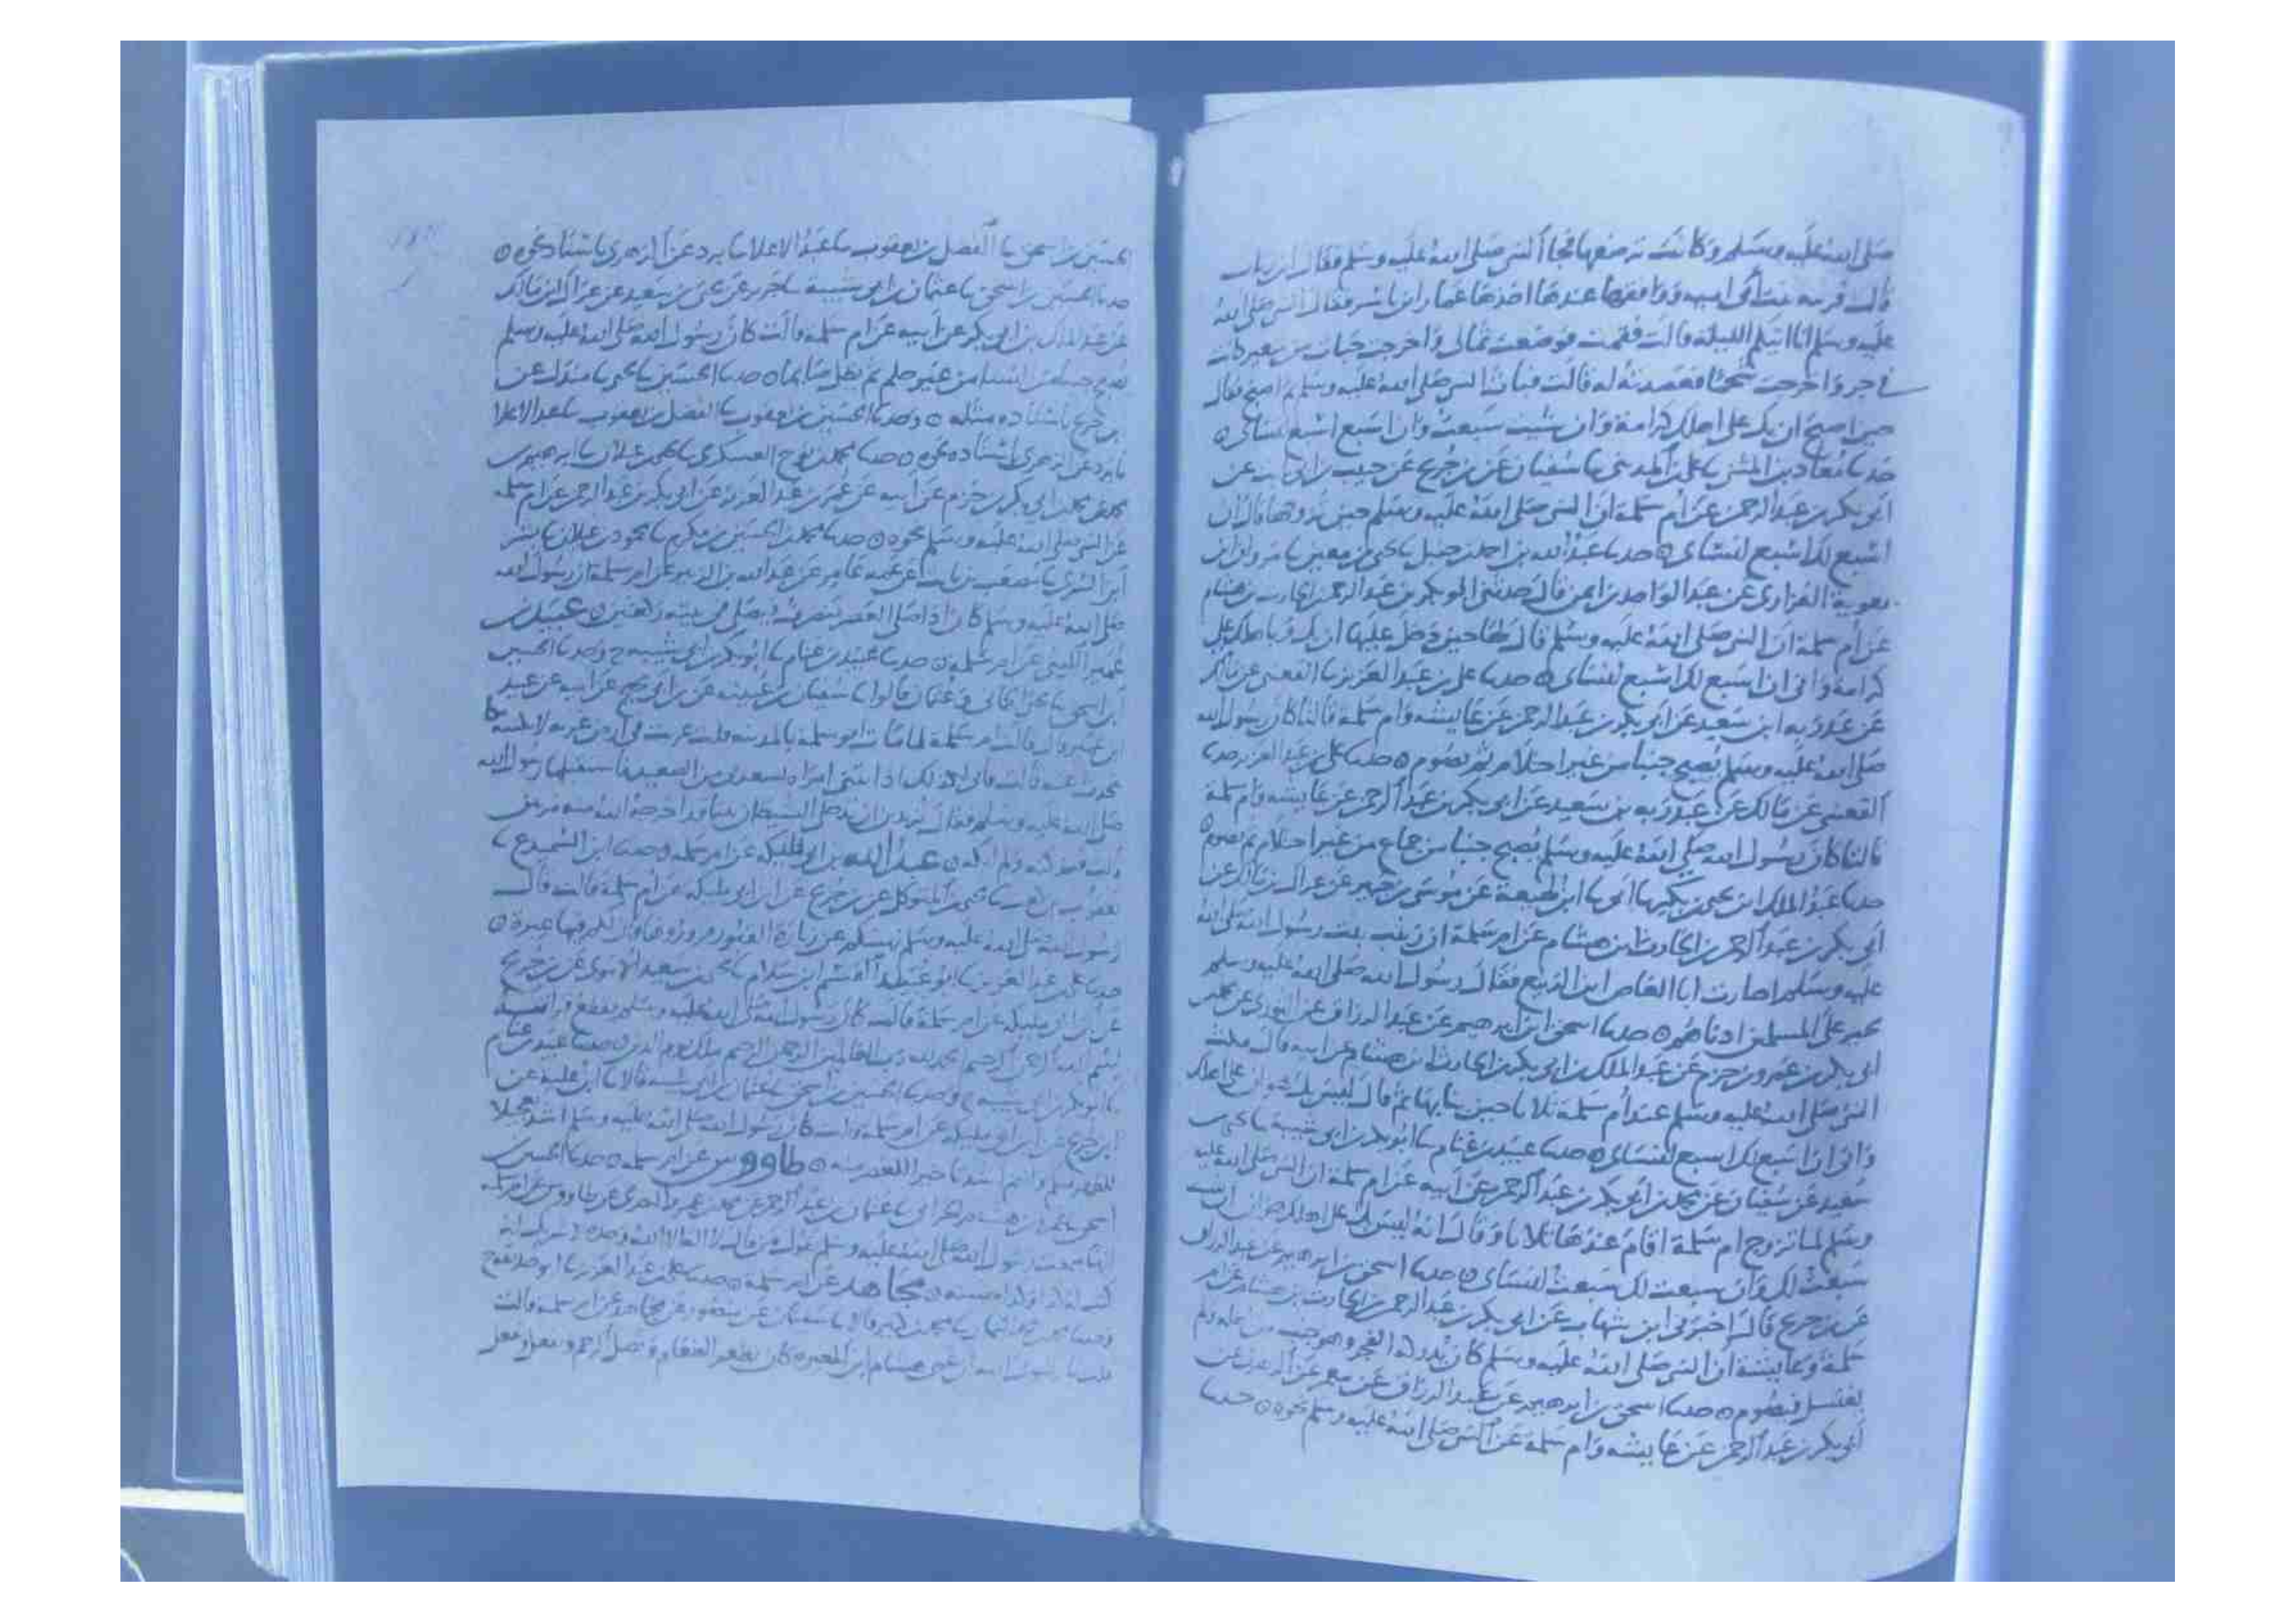 صلى الله عليه وسلم وكانت ترضعها فجاء النبي صلى الله عليه وسلم فقال اين زناب
قالت قريبه بنت ابي اميه ووافقها عندها اخذها عمار ابن ياسر فقال النبي صلى الله
عليه وسلم انا اتيكم الليلة قالت فقمت فوضعت ثفالي واخرجت حبات من شعير كانت
في جر واخرجت شحما فعصدته له قالت فبات النبي صلى الله عليه وسلم ثم اصبح فقال
حين اصبح ان بك على اهلك كرامة وان شيت سبعت وان اسبع اسبع لنساي ه
حدثنا معاذ بن المثنى نا علي بن المديني نا سفيان عن بن جريج عن حبيب بن ابي ثابت عن
ابي بكر بن عبد الرحمن عن ام سلمة ان النبي صلى الله عليه وسلم حين تزوجها قال ان
اسبع لك اسبع لنساي ه حدثنا عبد الله بن احمد بن حنبل نا يحيى بن معين نا مروان بن
معوية الفزاري عن عبد الواحد بن ايمن قال حدثني ابو بكر بن عبد الرحمن بن الحارث بن هشام
عن ام سلمة ان النبي صلى الله عليه وسلم قال لها حين دخل عليها ان بك وباهلك علي
كرامة واني ان اسبع لك اسبع لنساي ه حدثنا علي بن عبد العزيز نا القعنبي عن مالك
عن عبد ربه ابن سعيد عن ابي بكر بن عبد الرحمن عن عايشه وام سلمة قالتا كان رسول الله
صلى الله عليه وسلم يصبح جنبا من غير احلام ثم يصوم ه حدثنا علي بن عبد العزيز حدثنا
القعنبي عن مالك عن عبد ربه بن سعيد عن ابي بكر بن عبد الرحمن عن عايشه وام سلمة
قالتا كان رسول الله صلى الله عليه وسلم يصبح جنبا من جماع من غير احتلام ثم يصوم ه
حدثنا عبد الملك ابن يحيى بن بكير نا ابي نا ابن لهيعة عن موسى بن جبير عن عراك بن مالك عن
ابي بكر بن عبد الرحمن بن الحارث ابن هشام عن ام سلمة ان زينب بنت رسول الله صلى الله
عليه وسلم اجارت ابا العاص ابن الربيع فقال رسول الله صلى الله عليه وسلم
يجير على المسلمين ادناهم ه حدثنا اسحق ابن ابرهيم عن عبد الرزاق عن الثوري عن محمد بن
ابي بكر بن عمرو بن حزم عن عبد الملك بن ابي بكر بن الحارث ابن هشام عن ابيه قال مكث
النبي صلى الله عليه وسلم عند ام سلمة ثلاثا حين بنا بها ثم قال ليس بك هوان على اهلك
واني ان اسبع لك اسبع لنساي ه حدثنا عبيد بن غنام نا ابو بكر بن ابي شيبة نا يحيى بن
سعيد عن سفيان عن محمد بن ابي بكر بن عبد الرحمن عن ابيه عن ام سلمة ان النبي صلى الله عليه
وسلم لما تزوج ام سلمة اقام عندها ثلاثا وقال انه ليس بك على اهلك هوان ان شيت
سبعت لك وان سبعت لك سبعت لنساي ه حدثنا اسحق بن ابرهيم عن عبد الرزاق
عن بن جريج قال اخبرني ابن شهاب عن ابي بكر بن عبد الرحمن بن الحارث بن هشام عن ام
سلمة وعايشة ان النبي صلى الله عليه وسلم كان يدركه الفجر وهو جنب من اهله ثم
يغتسل فيصوم ه حدثنا اسحق بن ابرهيم عن عبد الرزاق عن معمر عن الزهري عن
ابي بكر بن عبد الرحمن عن عايشه وام سلمة عن النبي صلى الله عليه وسلم نحوه ه حدثنا
الحسين بن اسحق نا الفضل بن يعقوب نا عبد الاعلا نا برد عن الزهري باسناد نحوه ه
حدثنا الحسين بن اسحق نا عثمان بن ابي شيبة نا جرير عن يحيى بن سعيد عن عراك ابن مالك
عن عبد الملك بن ابي بكر عن ابيه عن ام سلمة قالت كان رسول الله صلى الله عليه وسلم
يصبح جنبا من النسا من غير حلم ثم يظل صايما ه حدثنا الحسين نا يحيى نا مندل عن
بن جريج باسناده مثله ه وحدثنا الحسين بن يعقوب نا الفضل بن يعقوب نا عبد الاعلا
نا برد عن الزهري باسناده نحوه ه حدثنا محمد بن نوح العسكري نا يحيى بن غيلان نا ابرهيم بن
محمد عن محمد بن ابي بكر بن حزم عن ابيه عن عمر بن عبد العزيز عن ابي بكر بن عبد الرحمن عن ام سلمة
عن النبي صلى الله عليه وسلم نحوه ه حدثنا محمد بن الحسين بن مكرم نا محمود بن غيلان نا بشر
ابن السري نا مصعب بن ثابت عن عمه عامر عن عبد الله بن الزبير عن ام سلمة ان رسول الله
صلى الله عليه وسلم كان اذا صلى العصر ينصرف فيصلي في بيته ركعتين ه عبيد بن
عمير الليثي عن ام سلمة ه حدثنا عبيد بن غنام نا ابو بكر بن ابي شيبه ح وحدثنا الحسين
ابن اسحق نا يحيى الحماني وعثمان قالوا نا سفيان بن عيينه عن ابن ابي نجيح عن ابيه عن عبيد
ابن عمير قال قالت ام سلمة لما مات ابو سلمة بالمدينه قلت غريب في ارض غربه لابكينه بكا
يحدث عنه قالت فاني لكذلك اذا اتتني امراه تسعدني من الصعيد فاستقبلها رسول الله
صلى الله عليه وسلم فقال تريدين ان تدخلي الشيطان بيتا قد اخرجه الله منه مرتين
قالت فلم ابكه ه عبد الله بن ابي مليكه عن ام سلمه وحدثنا ابن السميدع نا
يعقوب بن نا يحيى بن المتوكل عن بن جريج عن ابن ابي مليكه عن ام سلمة قالت قال
رسول الله صلى الله عليه وسلم نهيتكم عن زيارة القبور فزوروها فان لكم فيها عبرة ه
حدثنا علي بن عبد العزيز نا ابو عبيد القاسم ابن سلام نا يحيى بن سعيد الاموي عن بن جريج
عن ابن ابي مليكه عن ام سلمة قالت كان رسول الله صلى الله عليه وسلم يقطع قراته
بسم الله الرحمن الرحيم الحمد لله رب العالمين الرحمن الرحيم ملك يوم الدين ه حدثنا عبيد بن غنام
نا ابو بكر بن ابي شيبه ح وحدثنا الحسين بن اسحق نا عثمان بن ابي شيبه قالا نا ابن عليه عن
ابن جريج عن ابن ابي مليكه عن ام سلمة قالت كان رسول الله صلى الله عليه وسلم اشد تعجيلا
للظهر منكم وانتم اشد تاخيرا للعصر منه ه طاووس عن ام سلمه ه حدثنا الحسين بن
اسحق نا عثمان بن عبد الرحمن عن محمد بن عن طاووس عن ام سلمه
انها سمعت رسول الله صلى الله عليه وسلم يقول من قال لا اله الا الله وحده لا شريك له
كتب له كذا وكذا حسنه ه مجاهد عن ام سلمة ه حدثنا علي بن عبد العزيز نا ابو حذيفه ح
وحدثنا محمد بن نا محمد بن كثير قالا نا سفيان عن منصور عن مجاهد عن ام سلمه قالت
قلت يا رسول الله ان عمي هشام ابن المغيره كان يطعم الطعام ويصل الرحم ويفعل ويفعل